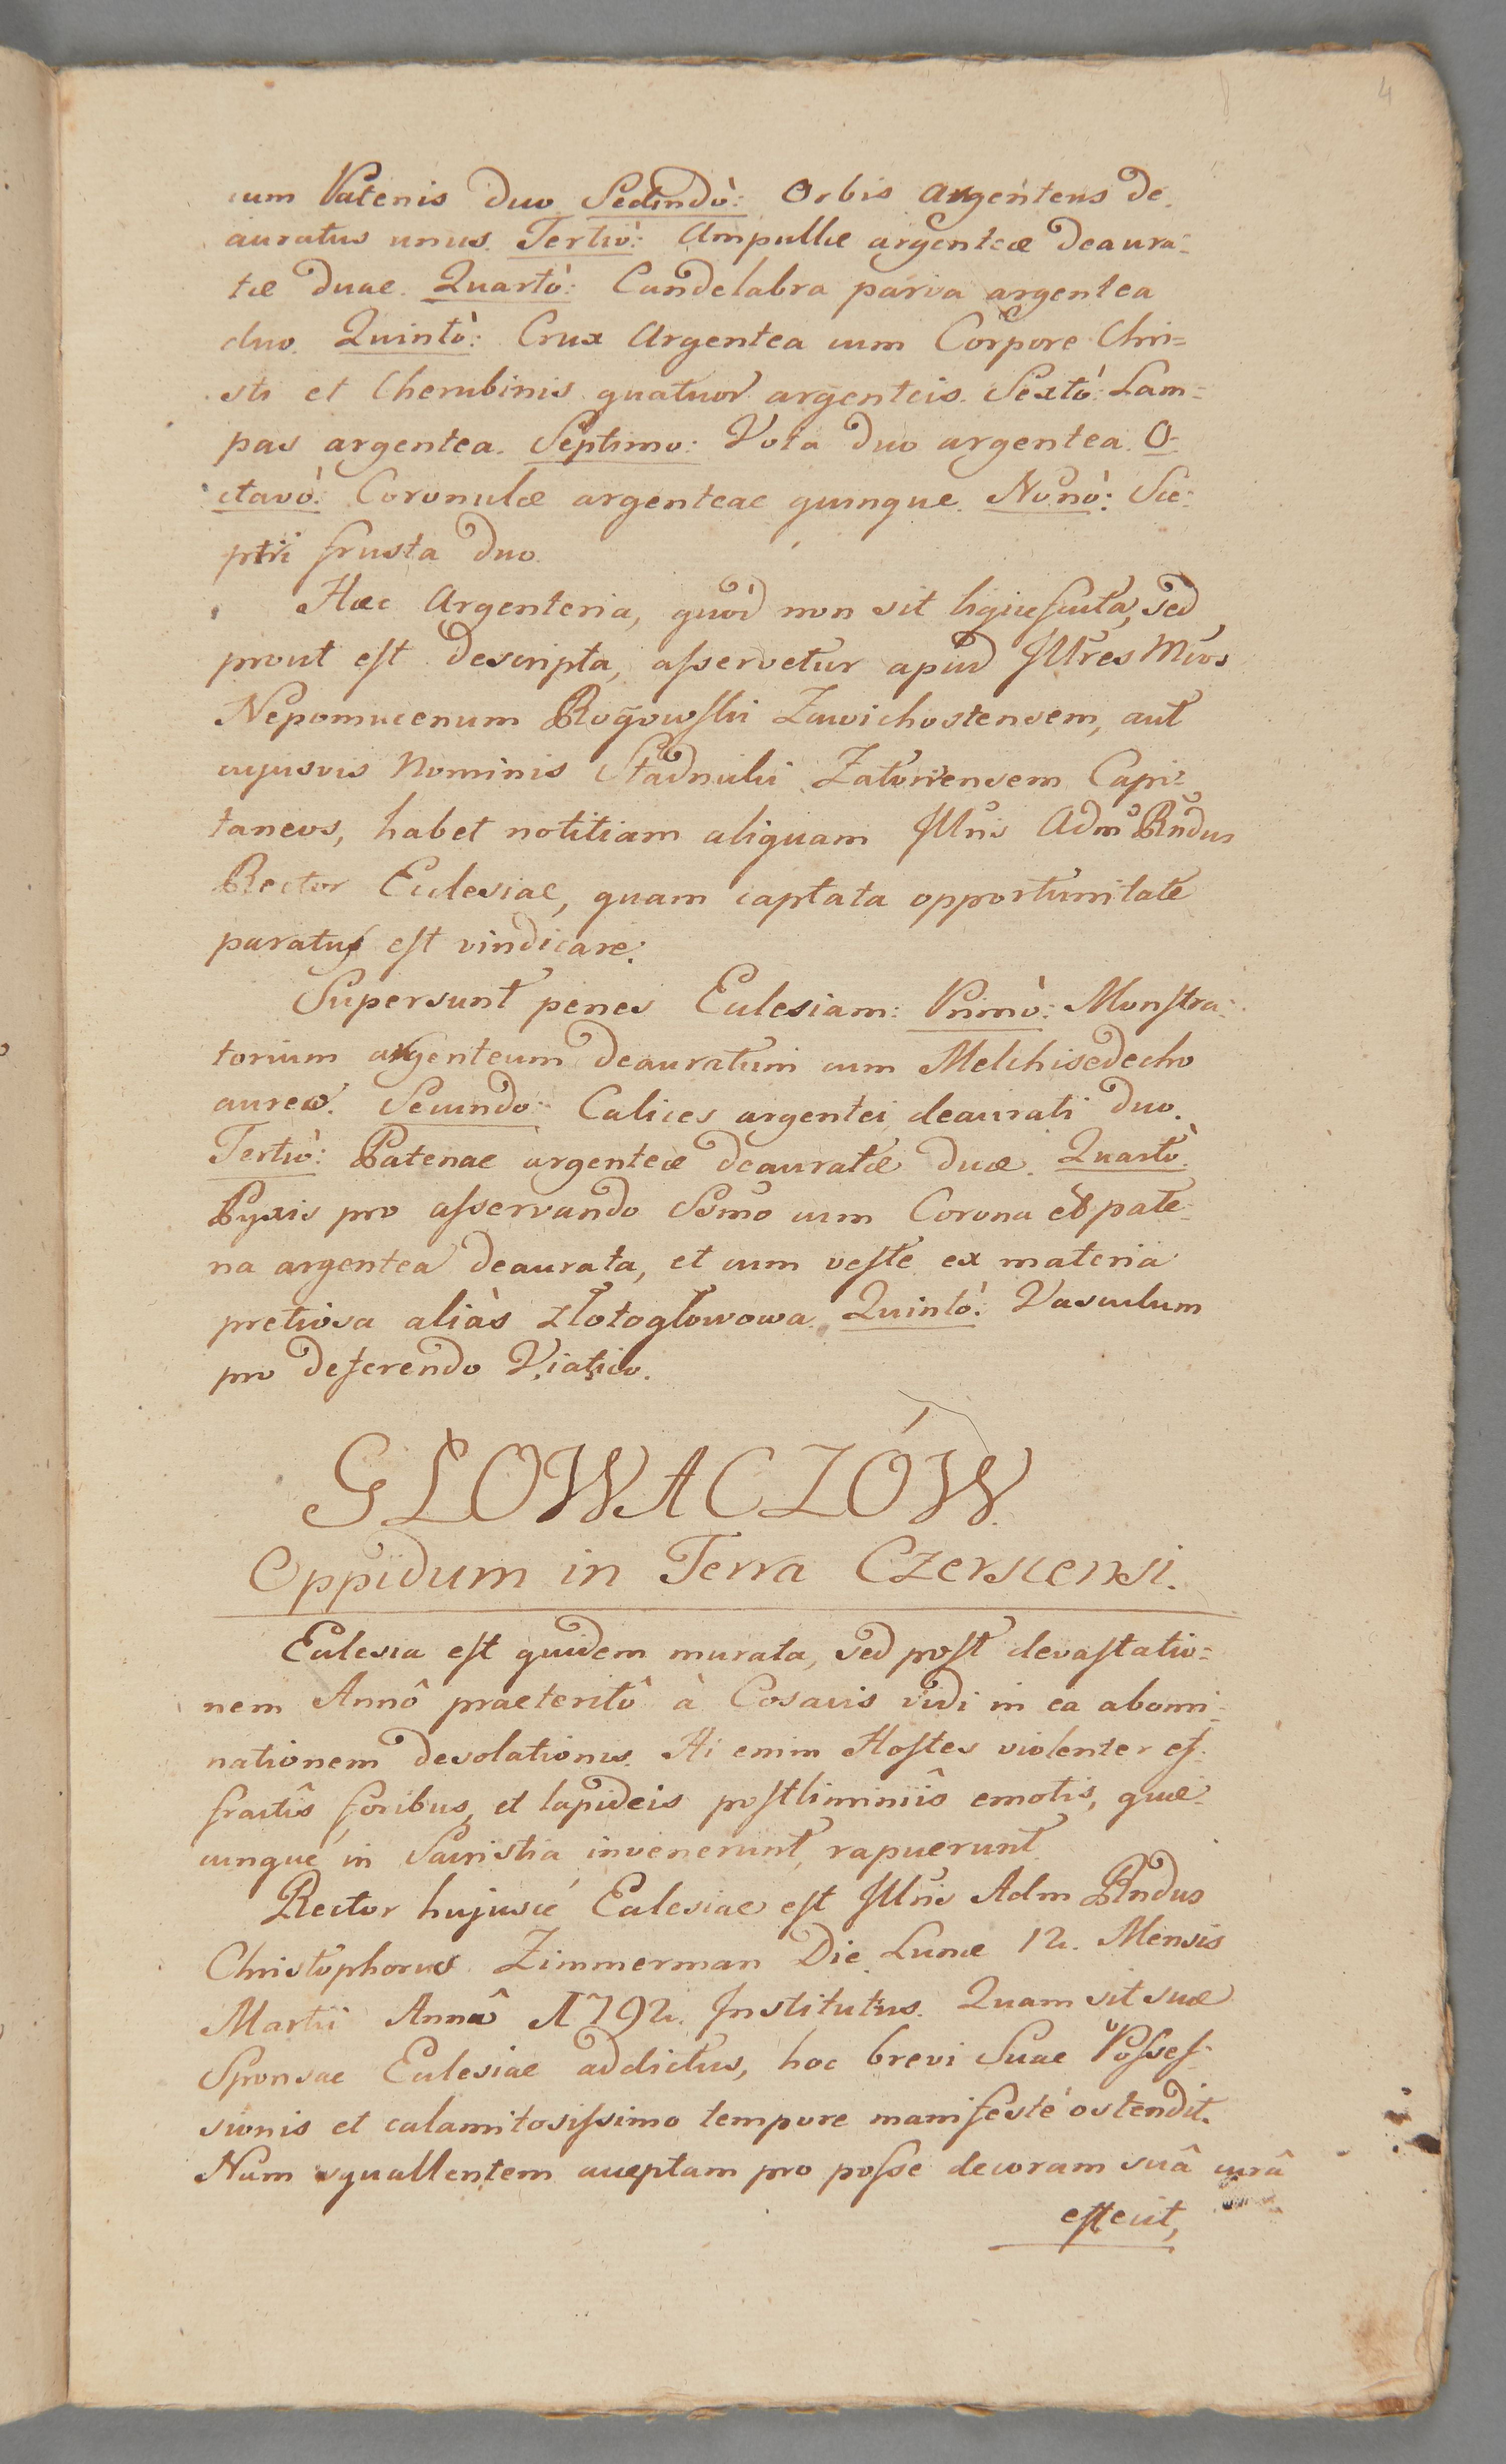 4
cum Patenis duo Secundò: Orbis argenteus de
auratus unus. Tertiò: Ampullæ argenteæ deaura-
tæ duae. Quartò: Candelabra parva argentea
duo. Quintò: Crux Argentea cum Corpore Chri=
sti et Cherubinis quatuor argenteis. Sextò: Lam=
pas argentea. Septimo: Vota duo argentea. O-
ctavò: Coronulæ argenteae quinque. Nonò: Sce-
ptri frusta duo.
Haec Argenteria, quòd non sit liquefacta, sed
prout est descripta, asservetur apud Illres Mcos
Nepomucenum Rogowski Zawichostensem, aut
cujusvis Nominis Stadnicki Zatoriensem Capi-
taneos, habet notitiam aliquam Illris Adm Rndus
Rector Ecclesiae, quam captata opportunitate
paratus est vindicare.
Supersunt penes Ecclesiam: Primò: Monstra-
torium argenteum deauratum cum Melchisedecho
aureo. Secundo: Calices argentei deaurati duo.
Tertiò: Patenae argenteæ deauratæ duæ. Quartò
Pyxis pro asservando Ssmo cum Corona et pate-
na argentea deaurata, et cum veste ex materia
pretiosa aliàs złotogłowowa. Quintò: Vasculum
pro deferendo Viatico.
GŁOWACZÓW.
Oppidum in Terra Czerscensi.
Ecclesia est quidem murata, sed post devastatio=
nem Annô praeteritô à Cosacis vidi in ea abomi-
nationem desolationis. Hi enim Hostes violenter ef-
fractîs foribus, et lapideis postliminiîs emotis, quæ-
cunque in Sacristia invenerunt, rapuerunt.
Rector hujusce Ecclesiae est Illris Adm Rndus
Christophorus Zimmerman Die Lunæ 12. Mensis
Martii Annô 1792. Institutus. Quam sit suæ
Sponsae Ecclesiae addictus, hoc brevi Suae Posses-
sionis et calamitosissimo tempore manifestè ostendit.
Nam squallentem acceptam pro posse decoram suâ curâ
effecit,